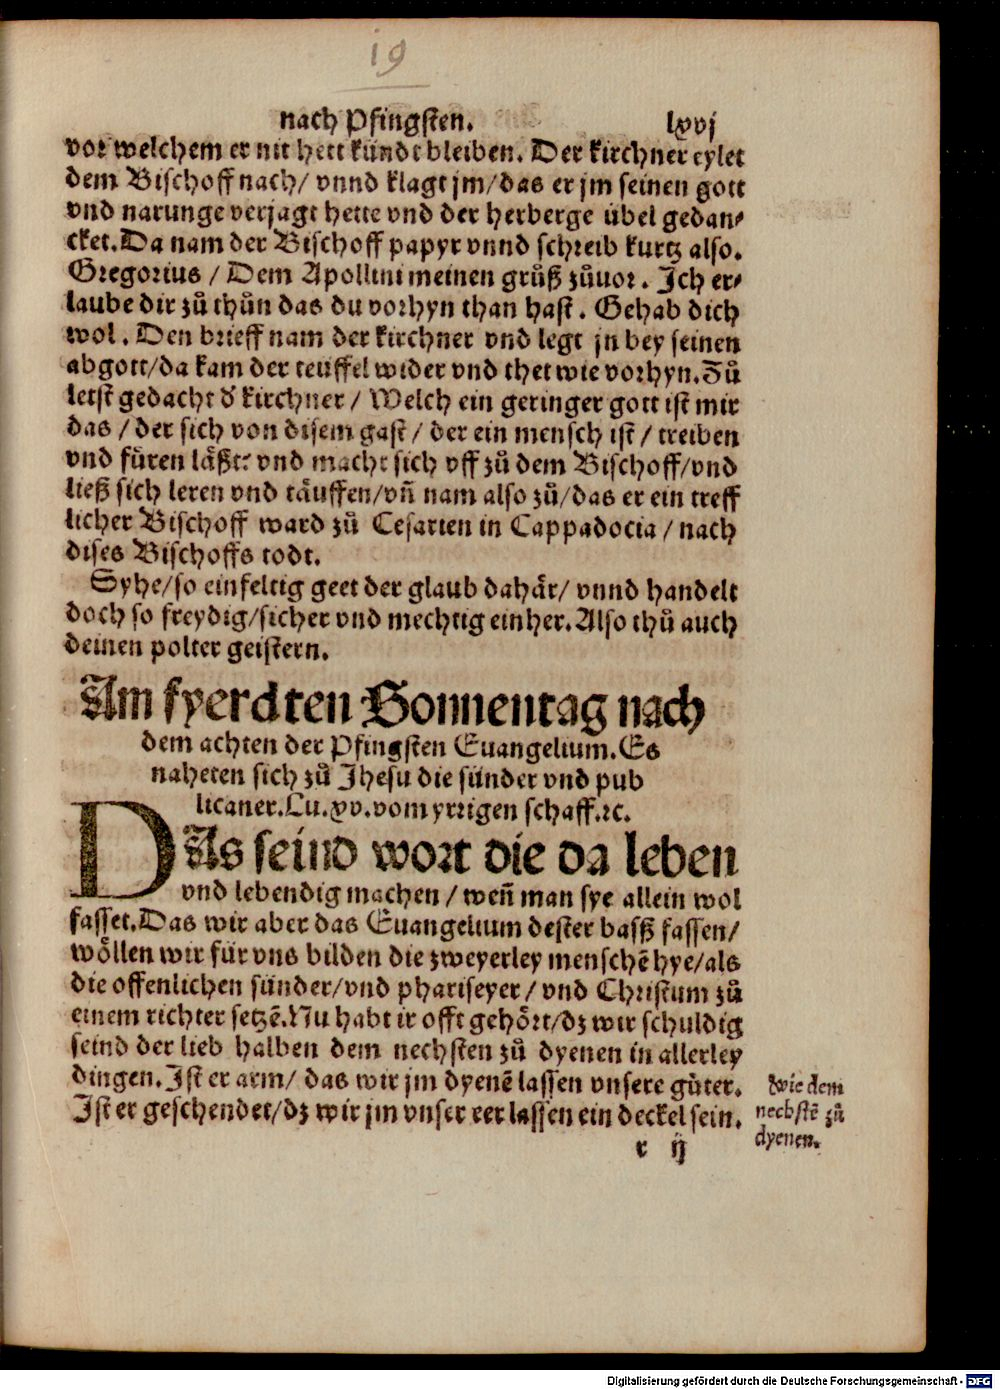 19
nach Pfingsten. lxvj
vor welchem er nit hett kündt bleiben. Der kirchner eylet
dem Bischoff nach/ vnnd klagt jm/das er jm seinen gott
vnd narunge verjagt hette vnd der herberge übel gedan⸗
cket. Da nam der Bischoff papyr vnnd schreib kurtz also.
Gregorius / Dem Apollini meinen grůß zůuor. Ich er⸗
laube dir zů thůn das du vorhyn than hast. Gehab dich
wol. Den brieff nam der kirchner vnd legt jn bey seinen
abgott/da kam der teuffel wider vnd thet wie vorhyn. Zů
letst gedacht d' kirchner / Welch ein geringer gott ist mir
das / der sich von disem gast / der ein mensch ist / treiben
vnd füren läßt: vnd macht sich vff zů dem Bischoff/vnd
ließ sich leren vnd täuffen/vñ nam also zů/das er ein treff
licher Bischoff ward zů Cesarien in Cappadocia / nach
dises Bischoffs todt.
Syhe/so einfeltig geet der glaub dahär/ vnnd handelt
doch so freydig/sicher vnd mechtig einher. Also thů auch
deinen polter geistern.
Am fyerdten Sonnentag nach
dem achten der Pfingsten Euangelium. Es
naheten sich zů Jhesu die sünder vnd pub
licaner. Lu. xv. vom yrrigen schaff. ꝛc.
DAs seind wort die da leben
vnd lebendig machen / weñ man sye allein wol
fasset. Das wir aber das Euangelium dester basß fassen/
wöllen wir für vns bilden die zweyerley menschē hye/als
die offenlichen sünder/vnd phariseyer / vnd Christum zů
einem richter setzē. Nu habt ir offt gehört/dz wir schuldig
seind der lieb halben dem nechsten zů dyenen in allerley
dingen. Ist er arm/ das wir jm dyenē lassen vnsere güter.
Ist er geschendet/dz wir jm vnser eer lassen ein deckel sein.
Wie dem
nechstē zů
dyenen.
r ij
Digitalisierung gefördert durch die Deutsche Forschungsgemeinschaft - DFG